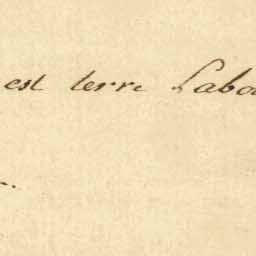 est terre Labou